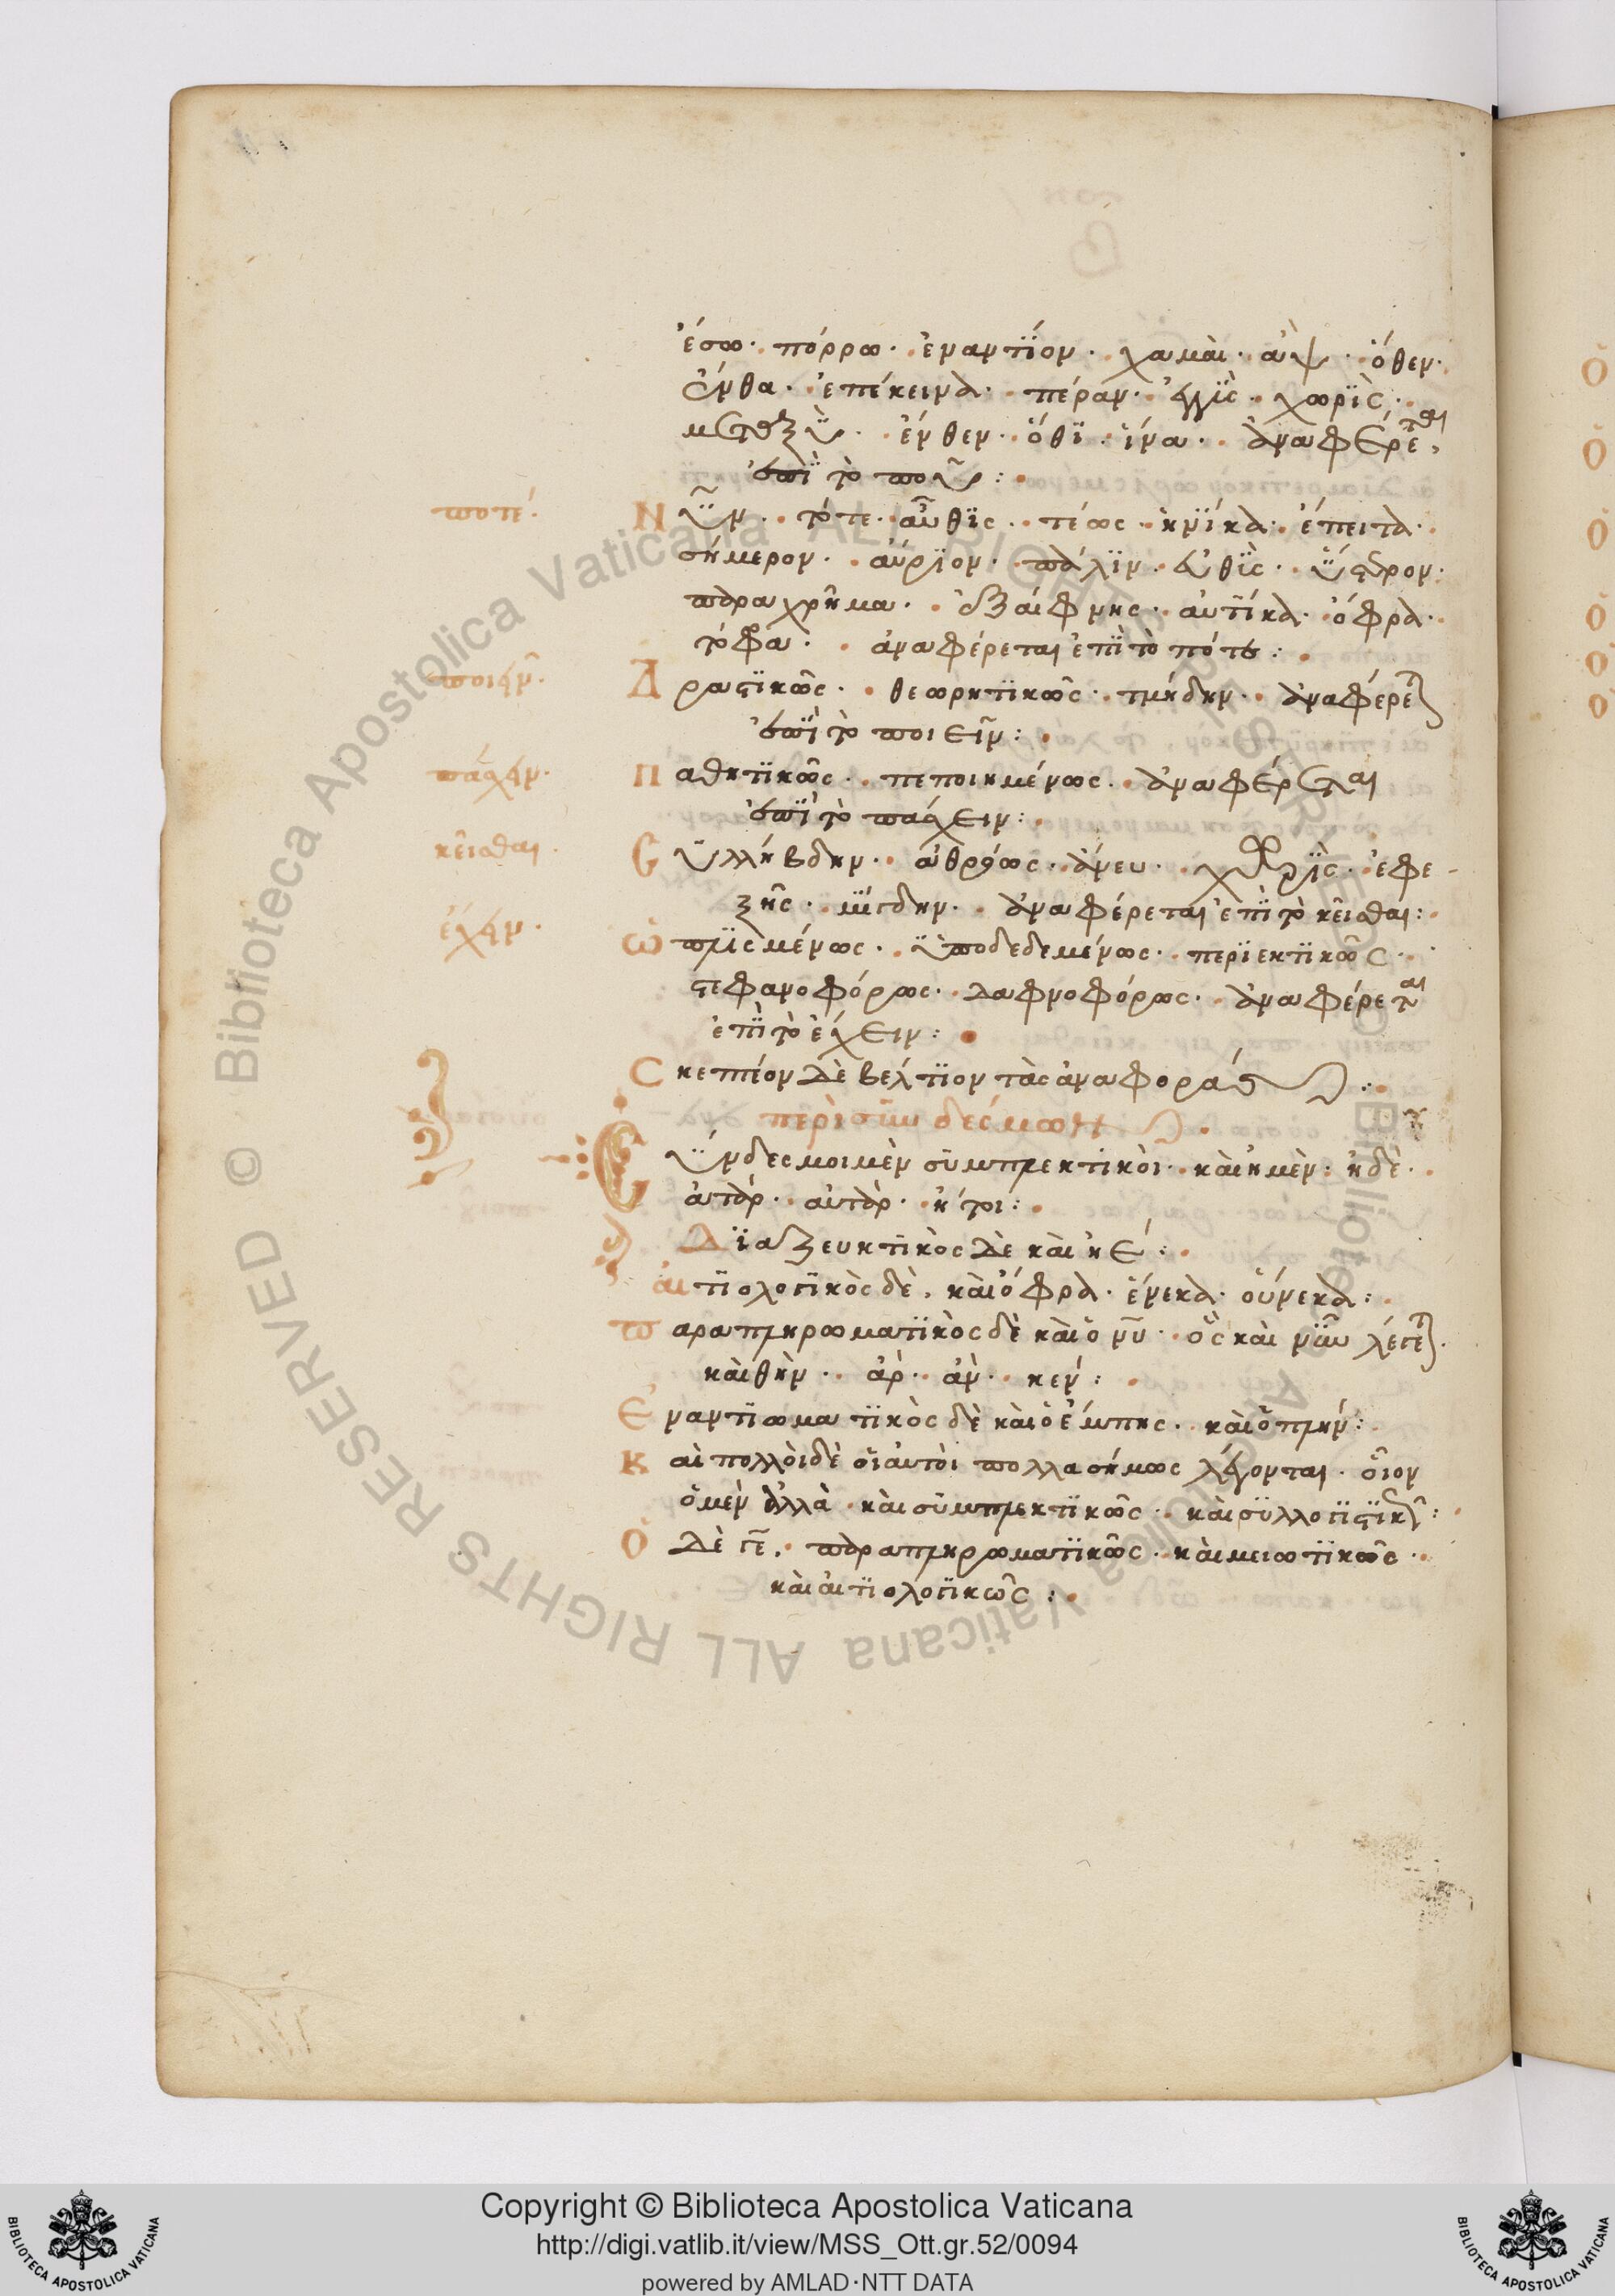 ἔσω· πόρρω· ἐναντίον· χαμαὶ· ἂψ· ὅθεν·
ἔνθα· ἐπέκεινα· πέραν· ἐγγὺς· χωρὶς·
μεταξὺ· ἔνθεν· ὅθι· ἵνα· ἀναφέρεται
ἐπὶ τὸ ποῦ:
ποτέ·
Νῦν· τότε· αὖθις· τέως· ἡνίκα· ἔπειτα·
σήμερον· αὔριον· πάλιν· εὐθὺς· ὕστερον·
παραχρῆμα· ἐξαίφνης· αὐτίκα· ὄφρα·
τόφρα· ἀναφέρεται ἐπὶ τὸ πότε:
ποιεῖν·
Δραστικῶς· θεωρητικῶς· τμήδην· ἀναφέρεται
ἐπὶ τὸ ποιεῖν:
πάσχειν·
Παθητικῶς· πεποιημένως· ἀναφέρεται
ἐπὶ τὸ πάσχειν:
κεῖσθαι·
Συλλήβδην· ἀθρόως· ἄνευ· χωρὶς· ἐφε-
ξῆς· μίγδην· ἀναφέρεται ἐπὶ τὸ κεῖσθαι:
ἔχειν·
Ὡπλισμένως· ὑποδεδεμένως· περιεκτικῶς·
στεφανοφόρως· δαφνοφόρως· ἀναφέρεται
ἐπὶ τὸ ἔχειν:
Σκεπτέον δὲ βέλτιον τὰς ἀναφοράς:
περὶ συνδέσμων
Σύνδεσμοι μὲν συμπλεκτικοὶ· καὶ ἠμὲν· ἠδὲ·
ἀτὰρ· αὐτὰρ· ἤτοι:
Διαζευκτικὸς δὲ καὶ ἠέ:
αἰτιολογικὸς δὲ, καὶ ὄφρα· ἕνεκα· οὕνεκα:
παραπληρωματικὸς δὲ καὶ ὁ νῦ· ὃς καὶ νῦν λέγεται·
καὶ θὴν· ἂρ· ἂν· κεν:
Ἐναντιωματικὸς δὲ καὶ ὁ ἔμπης· καὶ ὁ πλήν:
Καὶ πολλοὶ δὲ οἱ αὐτοὶ πολλασήμως λέγονται· οἷον
ὁ μὲν ἀλλὰ· καὶ συμπλεκτικῶς· καὶ συλλογιστικῶς:
Ὁ δὲ γε, παραπληρωματικῶς· καὶ μειωτικῶς·
καὶ αἰτιολογικῶς:
Copyright © Biblioteca Apostolica Vaticana
http://digi.vatlib.it/view/MSS_Ott.gr.52/0094
powered by AMLAD·NTT DATA
© Biblioteca Apostolica Vaticana ALL RIGHTS RESERVED
© Biblioteca Apostolica Vaticana ALL RIGHTS RESERVED
BIBLIOTECA APOSTOLICA VATICANA
BIBLIOTECA APOSTOLICA VATICANA